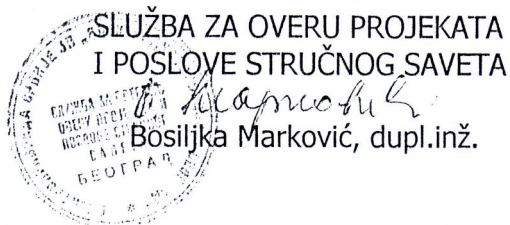 SLUŽBA ZA OVERU PROJEKATA
I POSLOVE STRUČNOG SAVETA
Марковић
Bosiljka Marković, dupl.inž.
БЕОГРАД